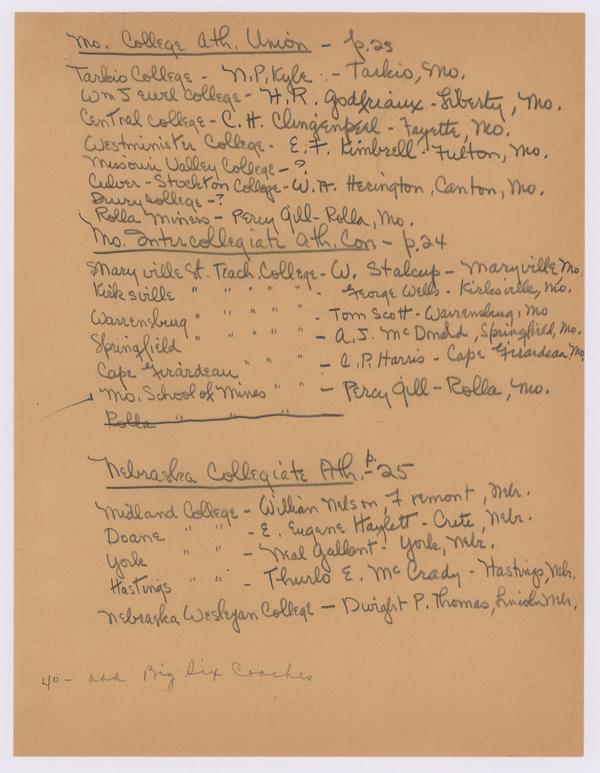 Mo. College Ath. Union - p.23
Tarkio College - N.P. Kyle - Tarkio, Mo.
Wm Jewel College - H.R. Godfriaux - Liberty, Mo.
Central College - C.H. Clingenpeel - Fayette, Mo.
Westminister College - E.F. Kimbrell - Fulton, Mo.
Missouri Valley College - ?
Culver-Stockton College - W.H. Herington, Canton, Mo.
Drury College - ?
Rolla Miners - Percy Gill - Rolla, Mo.
Mo. Intercollegiate Ath. Con - p.24
Maryville St. Teach. College - W. Stalcup - Maryville Mo.
Kirksville " " " " - George Wells - Kirksville, Mo.
Warrensburg " " " " - Tom Scott - Warrensburg, Mo
Springfield " " " " - A.J. McDonald, Springfield, Mo.
Cape Girardeau " " " - C.P. Harris - Cape Girardeau, Mo
Mo. School of Mines " " - Percy Gill - Rolla, Mo.
Rolla " " "
Nebraska Collegiate Ath. - p. 25
Midland College - William Nelson, Fremont, Nebr.
Doane " " - E. Eugene Haylett - Crete, Nebr.
York " " - Neal Gallant - York, Nebr.
Hastings " " - Thurlo E. McCrady - Hastings, Nebr.
Nebraska Wesleyan College - Dwight P. Thomas, Lincoln Nebr.
40 - and Big Six Coaches